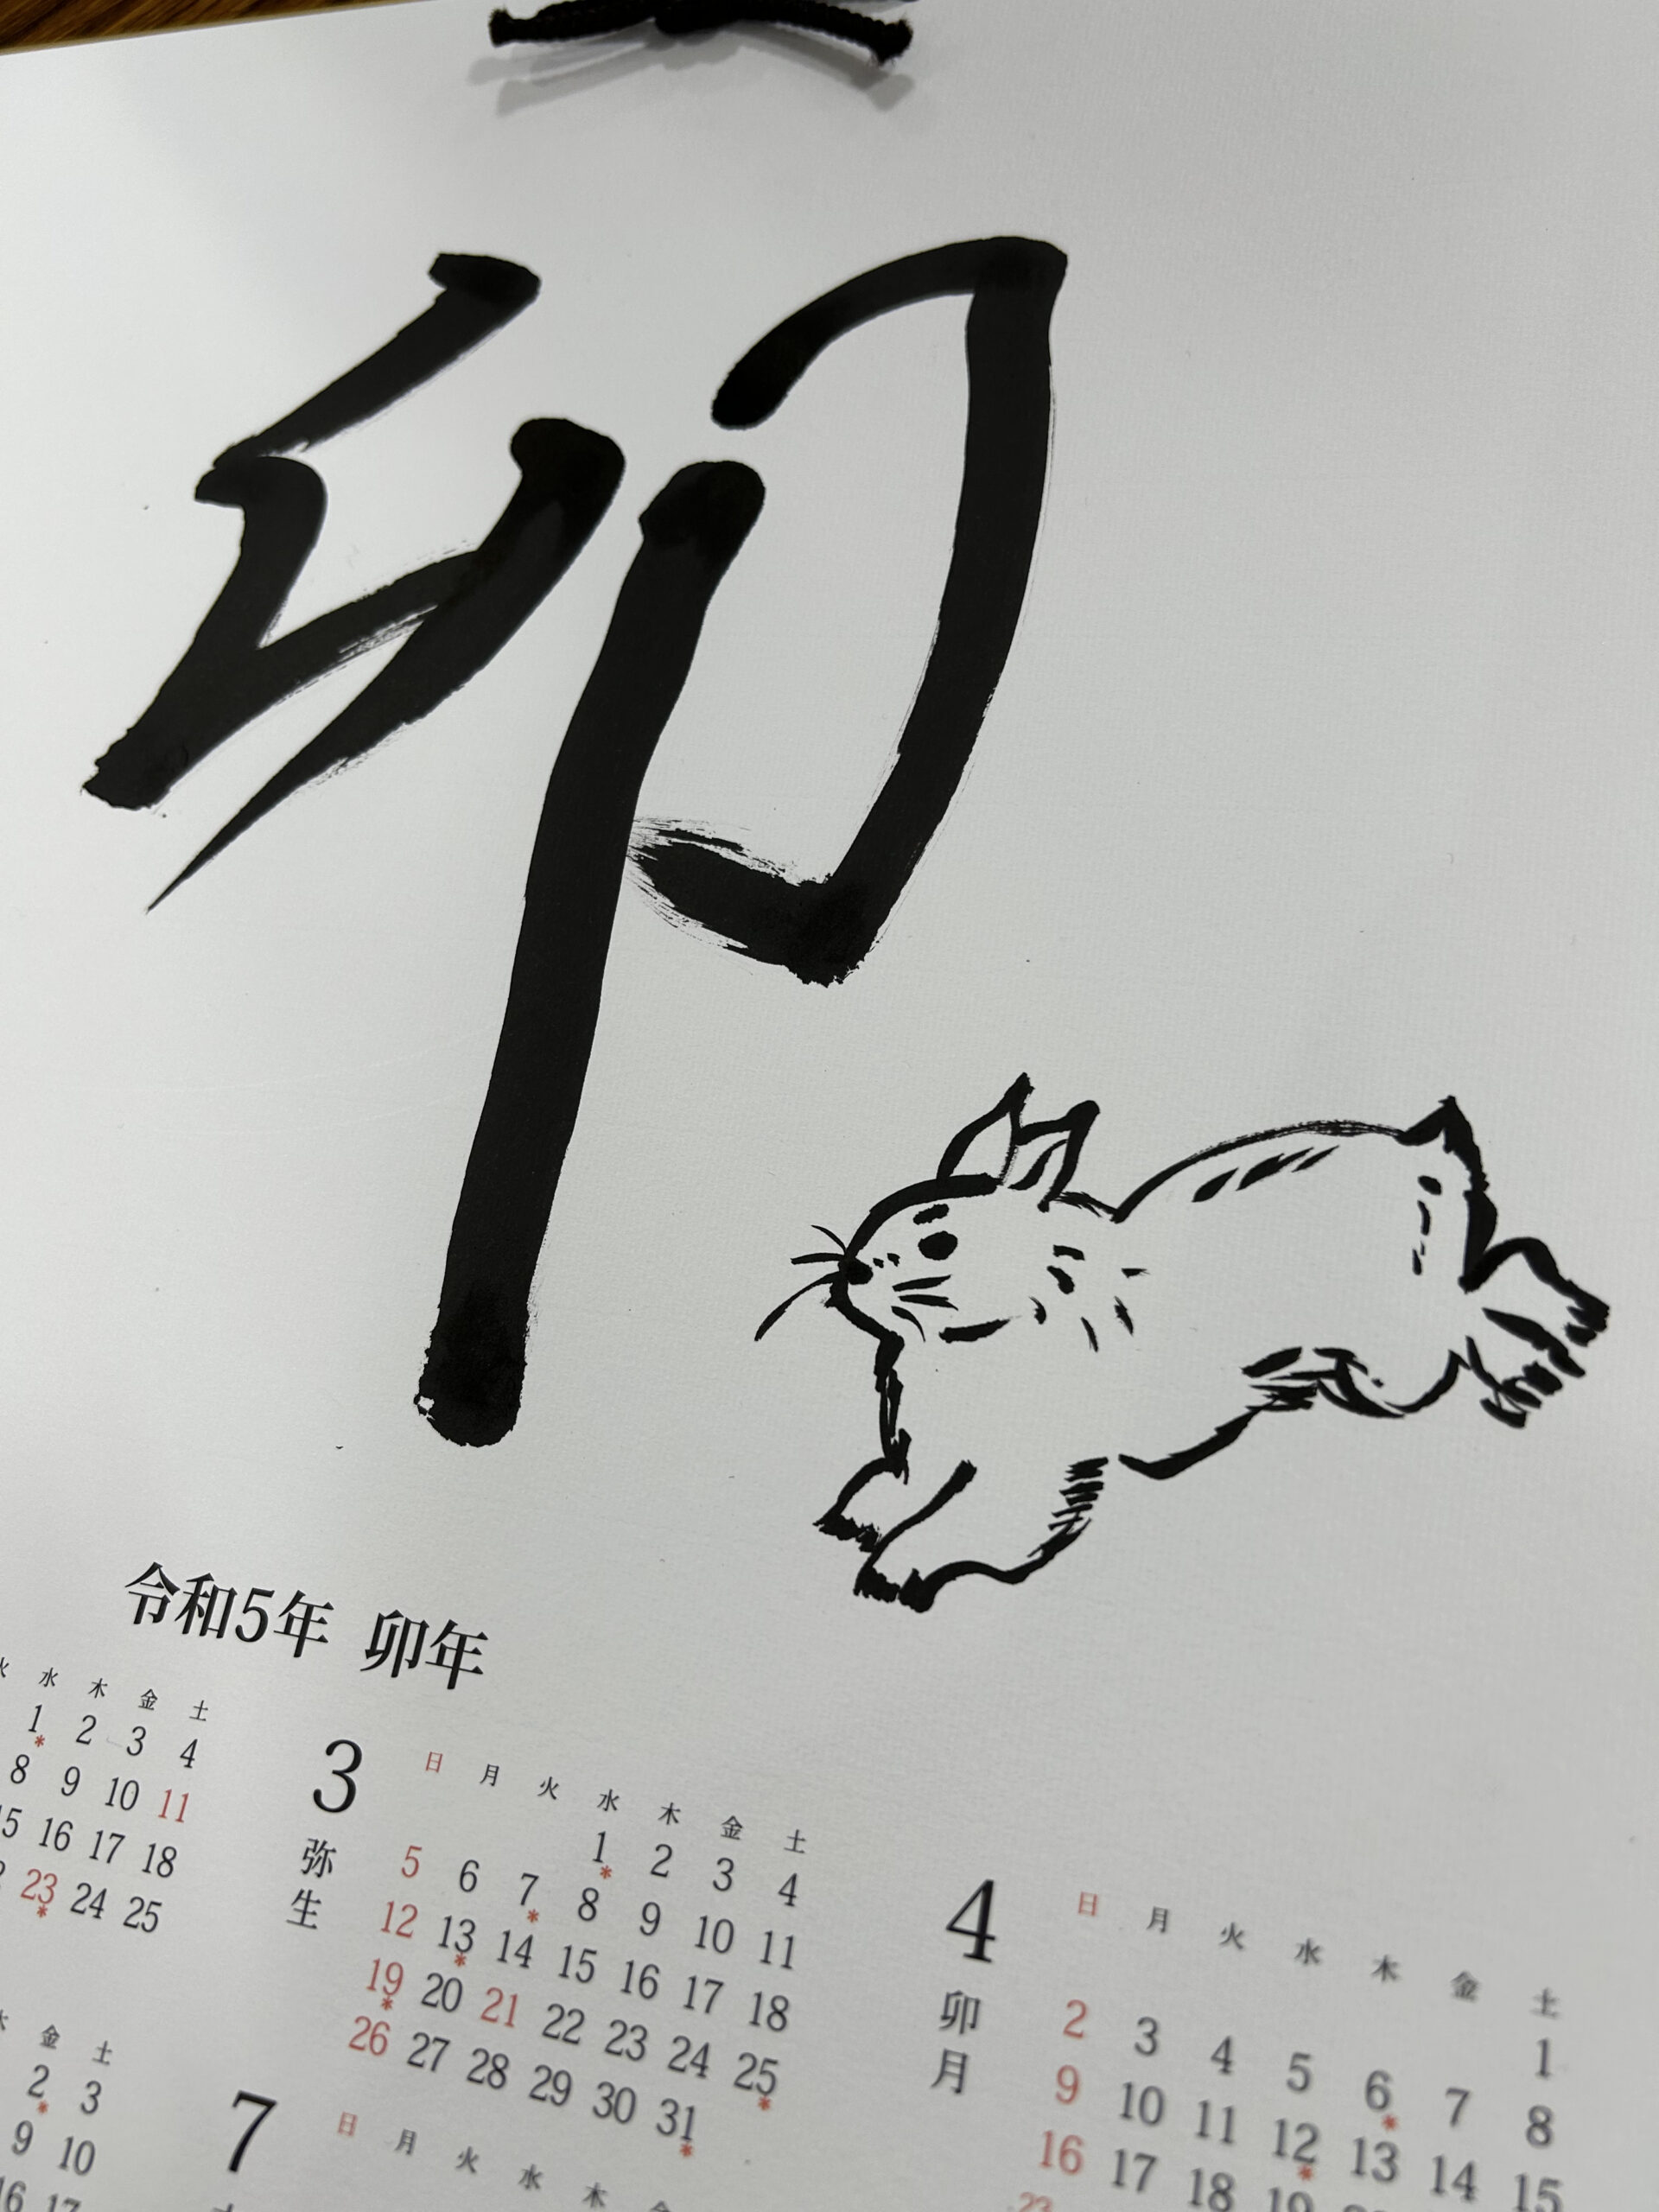 卯
令和5年 卯年
水 木 金 土
1 2 3 4
8 9 10 11
15 16 17 18
23 24 25
3
弥生
日 月 火 水 木 金 土
1 2 3 4
5 6 7 8 9 10 11
12 13 14 15 16 17 18
19 20 21 22 23 24 25
26 27 28 29 30 31
4
卯月
日 月 火 水 木 金 土
1
2 3 4 5 6 7 8
9 10 11 12 13 14 15
16 17 18 19
23
金 土
2 3
9 10
16 17
7
日 月 火 水 木 金